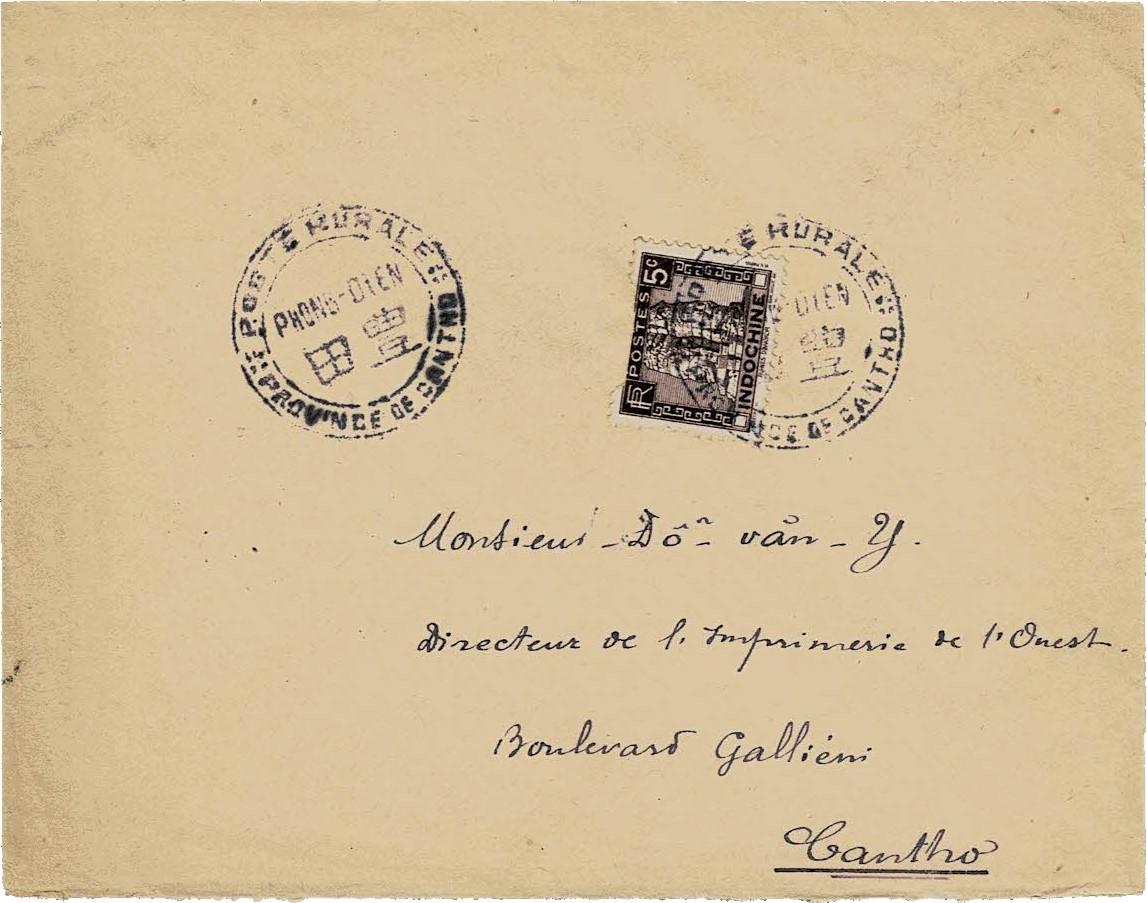 POSTE RURALE
PHONG-DIEN
田 豐
PROVINCE DE CANTHO
E RURALE
DIEN
豐
CE DE CANTHO
5c
POSTES
RF
INDOCHINE
Monsieur - Đỗ - văn - Y.
Directeur de l'Imprimerie de l'Ouest.
Boulevard Galliéni
Cantho